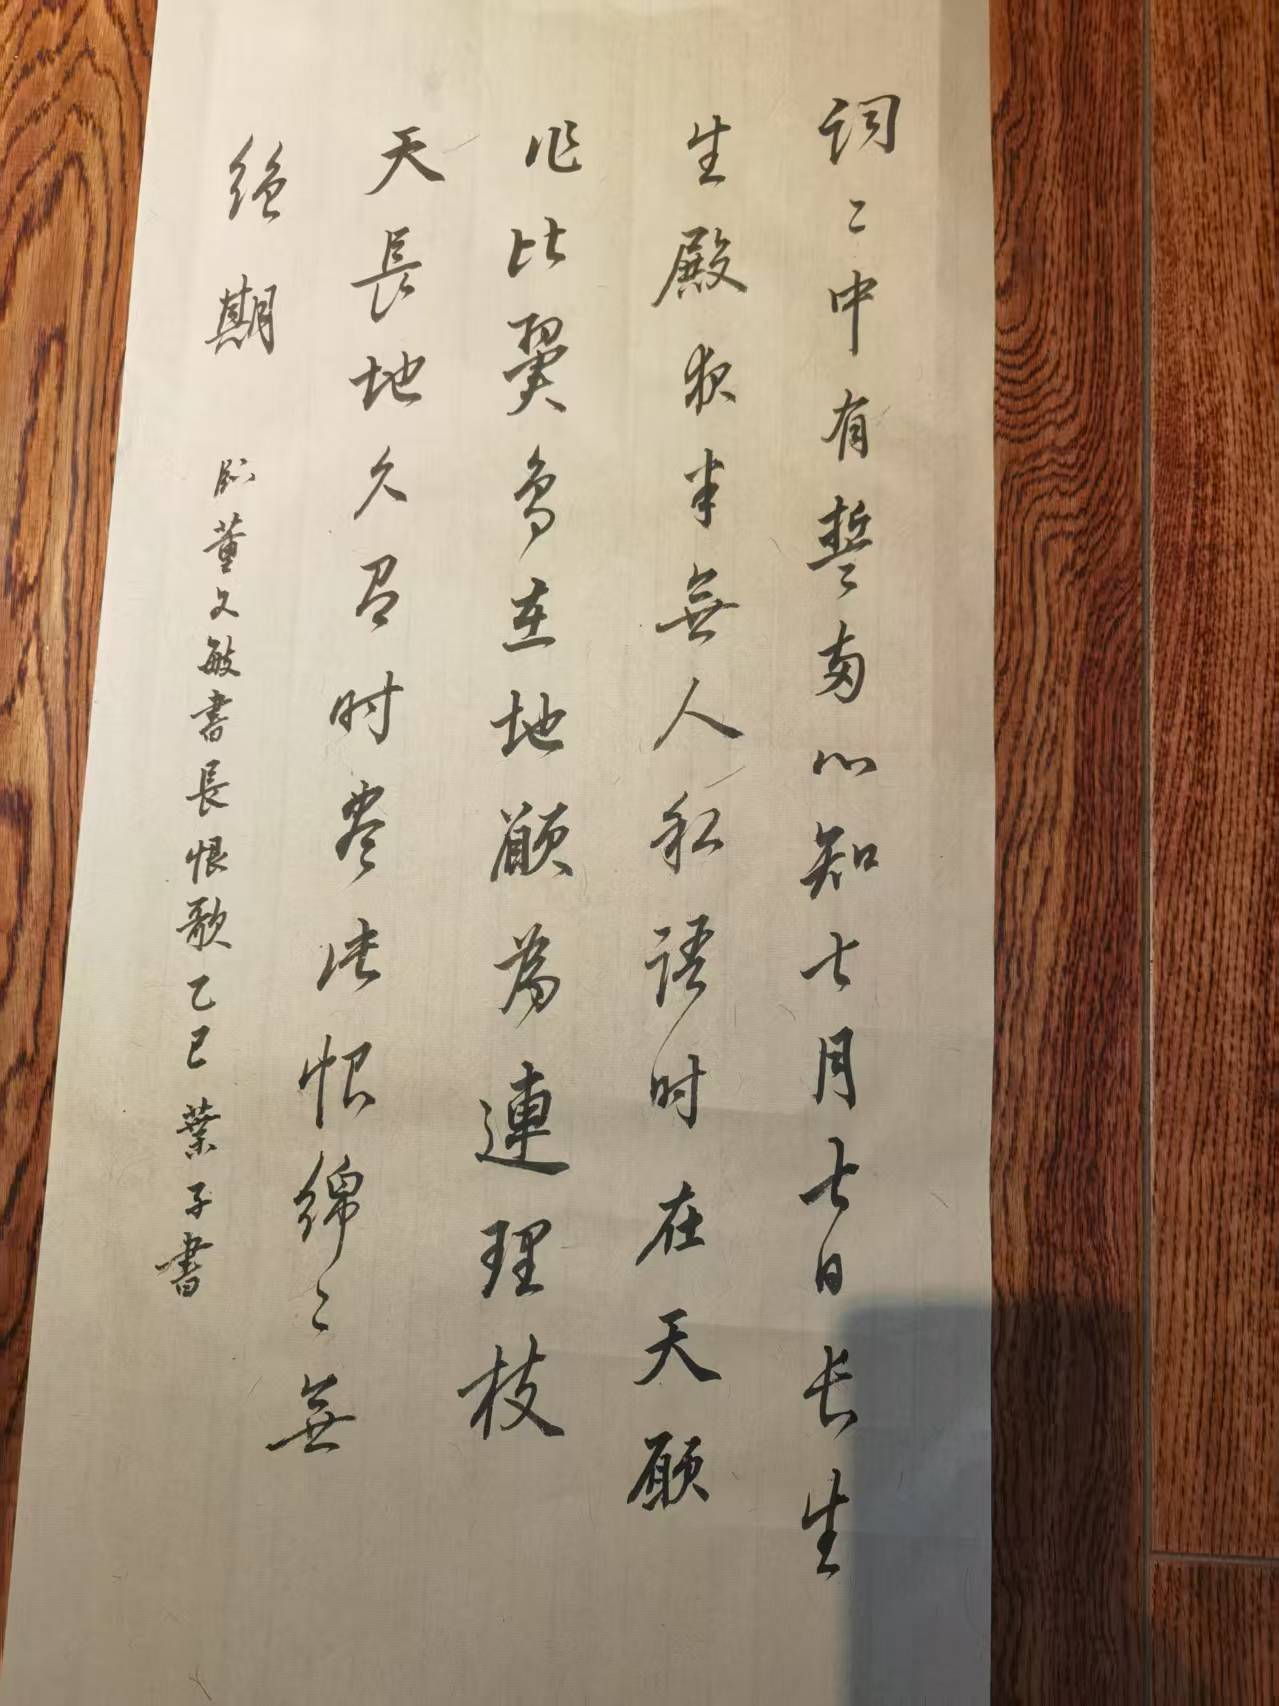 词〻中有誓两心知七月七日长生
生殿夜半無人私語时在天願
作比翼鸟在地願為連理枝
天長地久有时尽此恨綿〻無
絕期
临董文敏書長恨歌乙巳葉子書